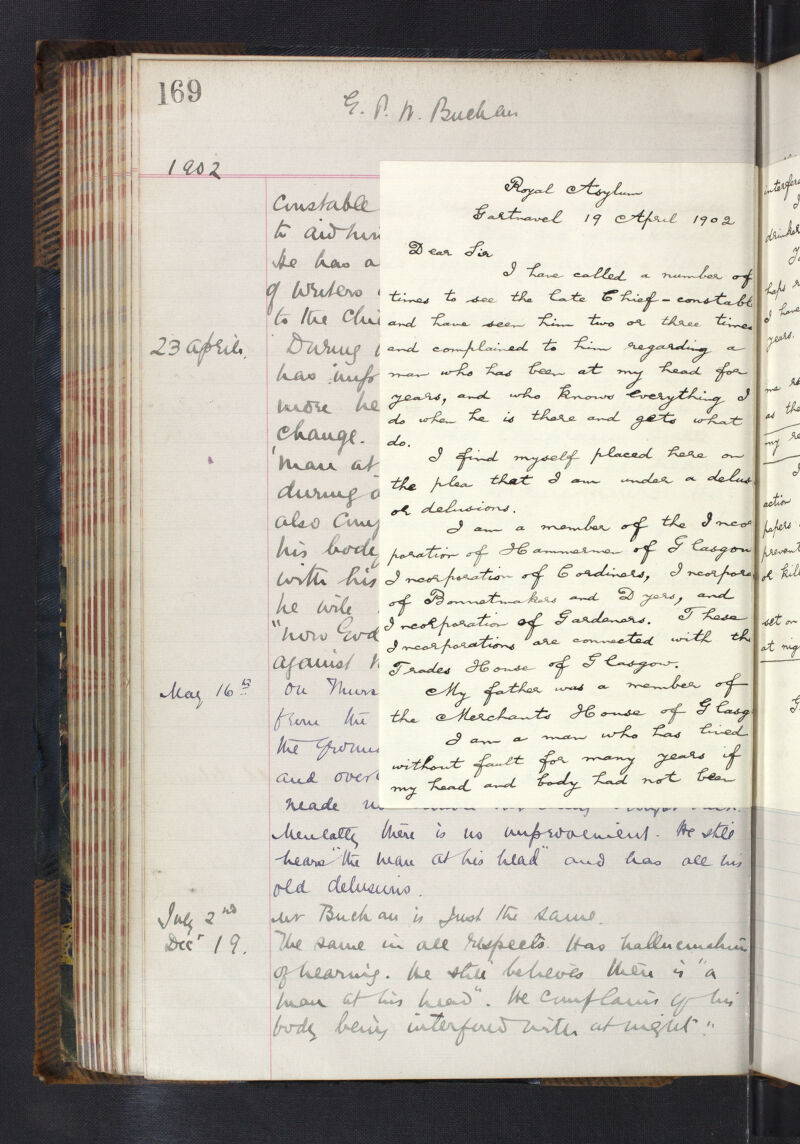 169
G. P. W. Buchan
1902
Constable
to aid him
He has a
of Writers
to the Chi
23 April.
During
has inf
more he
change.
"man at
during
also
his body
with his
he will
"how God
against
May 16th
On Thurs
from the
the groun
and over
made no
Mentally there is no improvement. He still
hears "the man at his head" and has all his
old delusions.
July 2nd
Mr Buchan is just the same.
Decr 19.
The same in all respects. Has hallucinations
of hearing. He still believes there is "a
man at his head". He complains of his
body being interfered with at night".
Royal Asylum
Gartnavel 19 April 1902
Dear Sir
I have called a number of
times to see the late Chief-constabl
and have seen him two or three times
and complained to him regarding a
man who has been at my head for
years, and who knows everything I
do when he is there and gets what
do.
I find myself placed here on
the plea that I am under a delus
or delusions.
I am a member of the Incor
poration of Hammermen of Glasgow
Incorporation of Cordiners, Incorpora
of Bonnetmakers and Dyers, and
Incorporation of Gardeners. These
Incorporations are connected with th
Trades House of Glasgow.
My father was a member of
the Merchants House of Glasg
I am a man who has lived
without fault for many years if
my head and body had not been
interfere
I
drinker
haps
I have
years.
me
as the
my
action
papers
prevent
or kill
set on
at nig